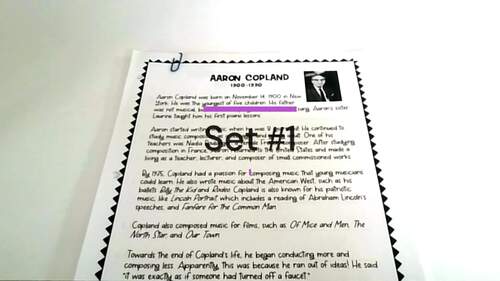 AARON COPLAND
1900-1990
Aaron Copland was born on November 14, 1900 in New
York. He was the youngest of five children. His father
was not musical, Aaron's sister
Laurine taught him his first piano lessons.
Aaron started writing when he was He continued to
study music One of his
teachers was Nadia After studying
composition in France, States and made a
living as a teacher, lecturer, and composer of small commissioned works.
Set #1
By 1935, Copland had a passion for composing music that young musicians
could learn. He also wrote music about the American West, such as his
ballets Billy the Kid and Rodeo. Copland is also known for his patriotic
music, like Lincoln Portrait which includes a reading of Abraham Lincoln's
speeches, and Fanfare for the Common Man.
Copland also composed music for films, such as Of Mice and Men, The
North Star, and Our Town.
Towards the end of Copland's life, he began conducting more and
composing less. Apparently, this was because he ran out of ideas! He said
"it was exactly as if someone had turned off a faucet."